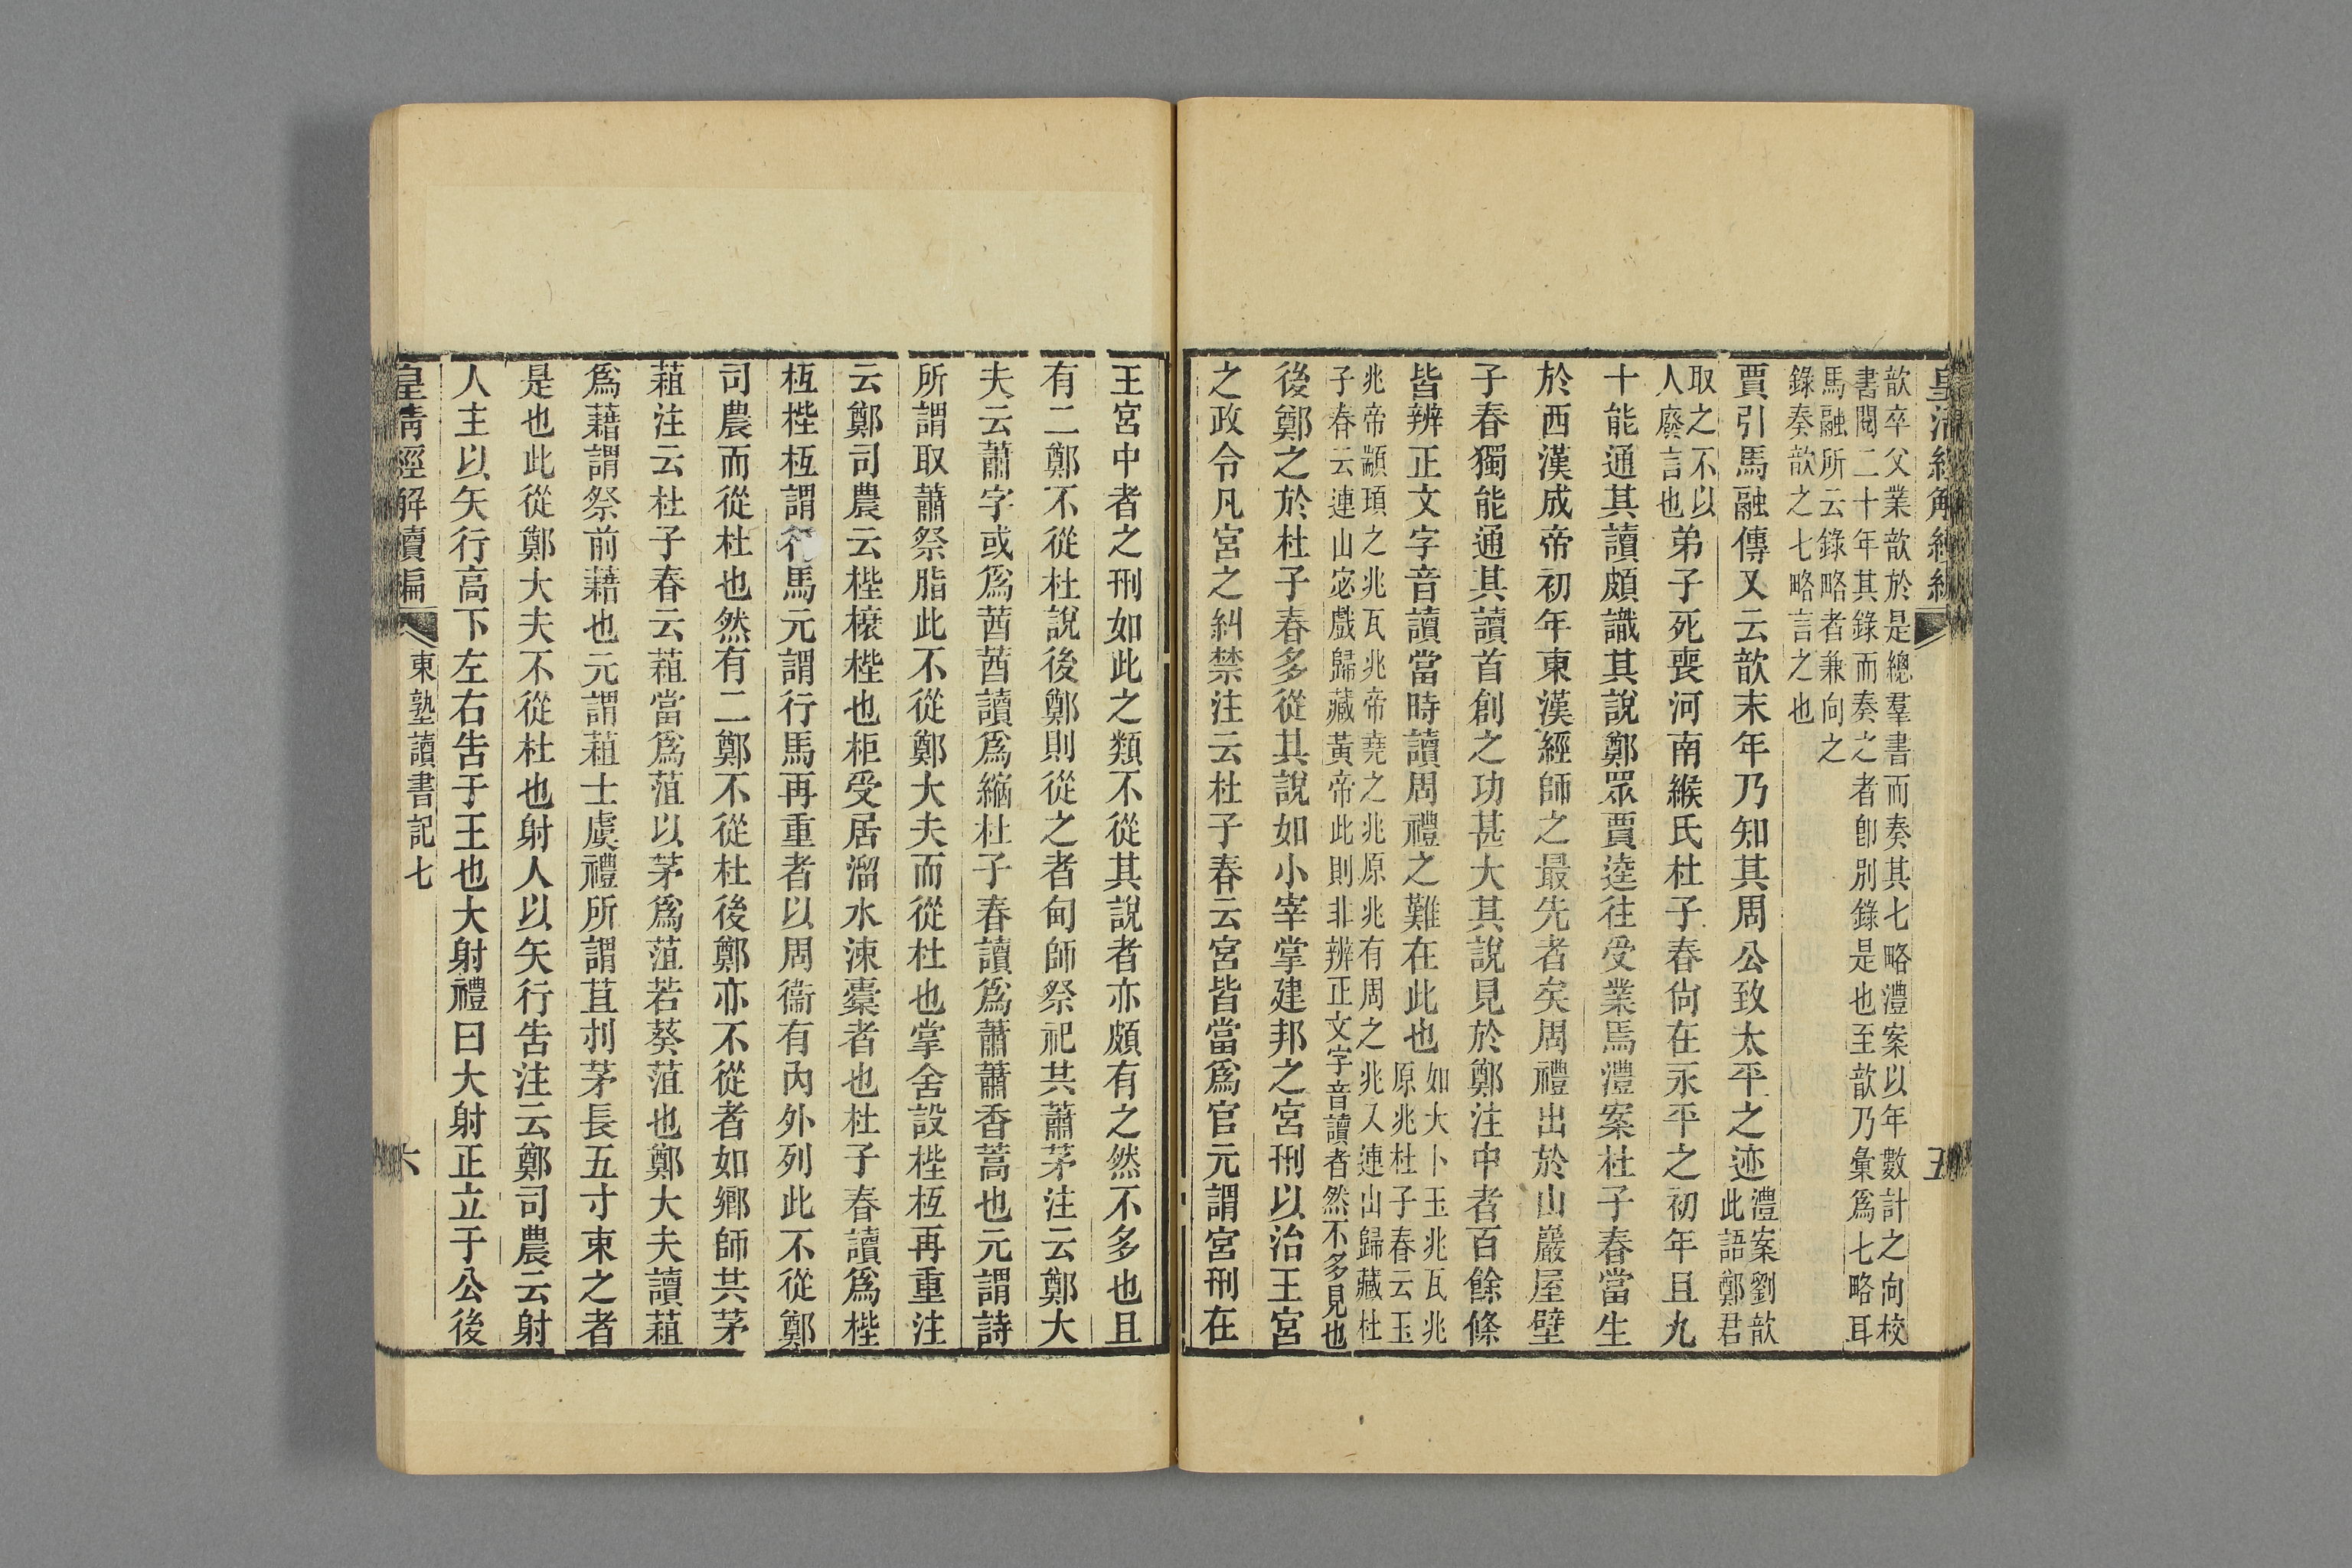 皇清經解續編
五
歆卒父業歆於是總羣書而奏其七略澧案以年數計之向校
書閱二十年其錄而奏之者卽別錄是也至歆乃彙爲七略耳
馬融所云錄略者兼向之
錄奏歆之七略言之也
賈引馬融傳又云歆末年乃知其周公致太平之迹澧案劉歆
此語鄭君
取之不以
人廢言也弟子死喪河南緱氏杜子春尙在永平之初年且九
十能通其讀頗識其說鄭眾賈逵往受業焉澧案杜子春當生
於西漢成帝初年東漢經師之最先者矣周禮出於山巖屋壁
子春獨能通其讀首創之功甚大其說見於鄭注中者百餘條
皆辨正文字音讀當時讀周禮之難在此也如大卜玉兆瓦兆
原兆杜子春云玉
兆帝顓頊之兆瓦兆帝堯之兆原兆有周之兆又連山歸藏杜
子春云連山宓戲歸藏黃帝此則非辨正文字音讀者然不多見也
後鄭之於杜子春多從其說如小宰掌建邦之宮刑以治王宮
之政令凡宮之糾禁注云杜子春云宮皆當爲官元謂宮刑在
王宮中者之刑如此之類不從其說者亦頗有之然不多也且
有二鄭不從杜說後鄭則從之者甸師祭祀共蕭茅注云鄭大
夫云蕭字或爲莤莤讀爲縮杜子春讀爲蕭蕭香蒿也元謂詩
所謂取蕭祭脂此不從鄭大夫而從杜也掌舍設梐枑再重注
云鄭司農云梐榱梐也柜受居溜水涑橐者也杜子春讀爲梐
枑梐枑謂行馬元謂行馬再重者以周衞有內外列此不從鄭
司農而從杜也然有二鄭不從杜後鄭亦不從者如鄉師共茅
蒩注云杜子春云蒩當爲菹以茅爲菹若葵菹也鄭大夫讀蒩
爲藉謂祭前藉也元謂蒩士虞禮所謂苴刌茅長五寸束之者
是也此從鄭大夫不從杜也射人以矢行告注云鄭司農云射
人主以矢行高下左右告于王也大射禮曰大射正立于公後
皇清經解續編
東塾讀書記七
六